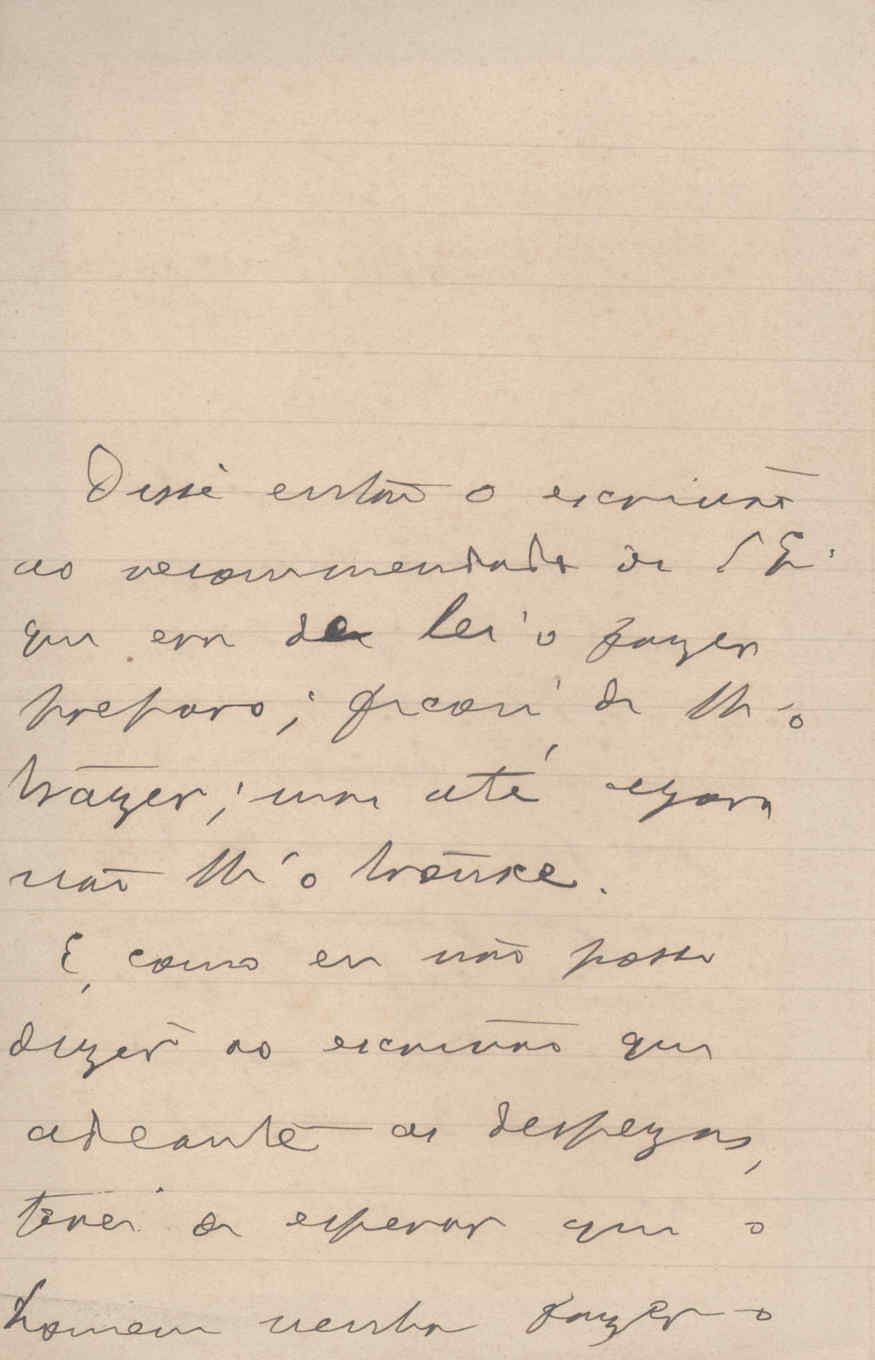 Disse então o escrivão
ao recommendado de S. Ex.
que era de lei o fazer
preparo; ficou de lh'o
trazer; mas até agora
não lh'o trouxe.
E, como eu não posso
dizer ao escrivão que
adeante as despezas,
terei de esperar que o
homem venha fazer o